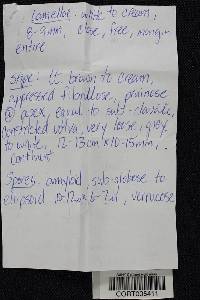 Lamellae: white to cream,
8-9mm, close, free, margin
entire
Stipe: lt brown to cream,
appressed fibrillose, pruinose
@ apex, equal to sub-clavate,
constricted volva, very loose, grey
to white, 12-13cm x 10-15mm,
Spores: amyloid, sub-globose to
ellipsoid verrucose
CORT005411